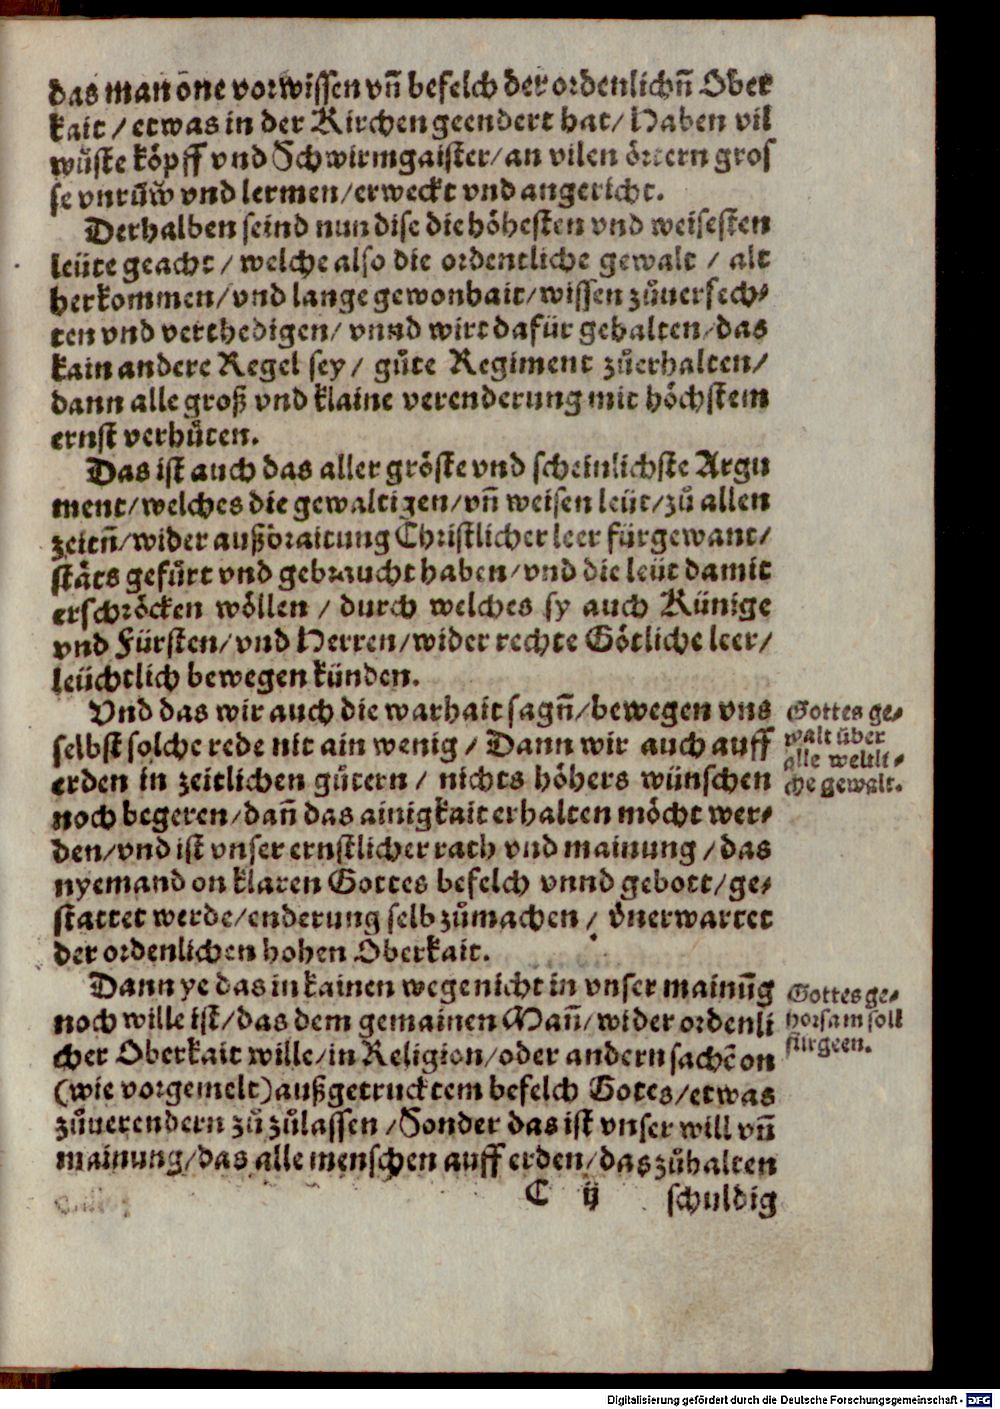 das man one vorwissen vñ befelch der ordenlichñ Ober
kait / etwas in der Kirchen geendert hat / Haben vil
wůste köpff vnd Schwirmgaister / an vilen örtern gros
se vnrůw vnd lermen / erweckt vnd angericht.
Derhalben seind nun dise die höhesten vnd weisesten
leüte geacht / welche also die ordentliche gewalt / alt
herkommen / vnd lange gewonhait / wissen zůuerfech⸗
ten vnd verthedigen / vnnd wirt dafür gehalten / das
kain andere Regel sey / gůte Regiment zůerhalten /
dann alle groß vnd klaine verenderung mit höchstem
ernst verhůten.
Das ist auch das aller gröste vnd scheinlichste Argu
ment / welches die gewaltigen / vñ weisen leüt / zů allen
zeitñ / wider außbraitung Christlicher leer fürgewant /
stäts gefůrt vnd gebraucht haben / vnd die leüt damit
erschröcken wöllen / durch welches sy auch Künige
vnd Fürsten / vnd Herren / wider rechte Götliche leer /
leüchtlich bewegen künden.
Vnd das wir auch die warhait sagñ / bewegen vns
selbst solche rede nit ain wenig / Dann wir auch auff
erden in zeitlichen gůtern / nichts höhers wünschen
noch begeren / dañ das ainigkait erhalten möcht wer⸗
den / vnd ist vnser ernstlicher rath vnd mainung / das
nyemand on klaren Gottes befelch vnnd gebott / ge⸗
stattet werde / enderung selb zůmachen / vnerwartet
der ordenlichen hohen Oberkait.
Dann ye das in kainen wege nicht in vnser mainūg
noch wille ist / das dem gemainen Mañ / wider ordenli
cher Oberkait wille / in Religion / oder andern sachē on
(wie vorgemelt) außgetrucktem befelch Gotes / etwas
zůuerendern zů zůlassen / Sonder das ist vnser will vñ
mainung / das alle menschen auff erden / das zůhalten
C ij schuldig
Gottes ge⸗
walt über
alle weltli⸗
che gewalt.
Gottes ge⸗
horsam soll
fürgeen.
Digitalisierung gefördert durch die Deutsche Forschungsgemeinschaft - DFG